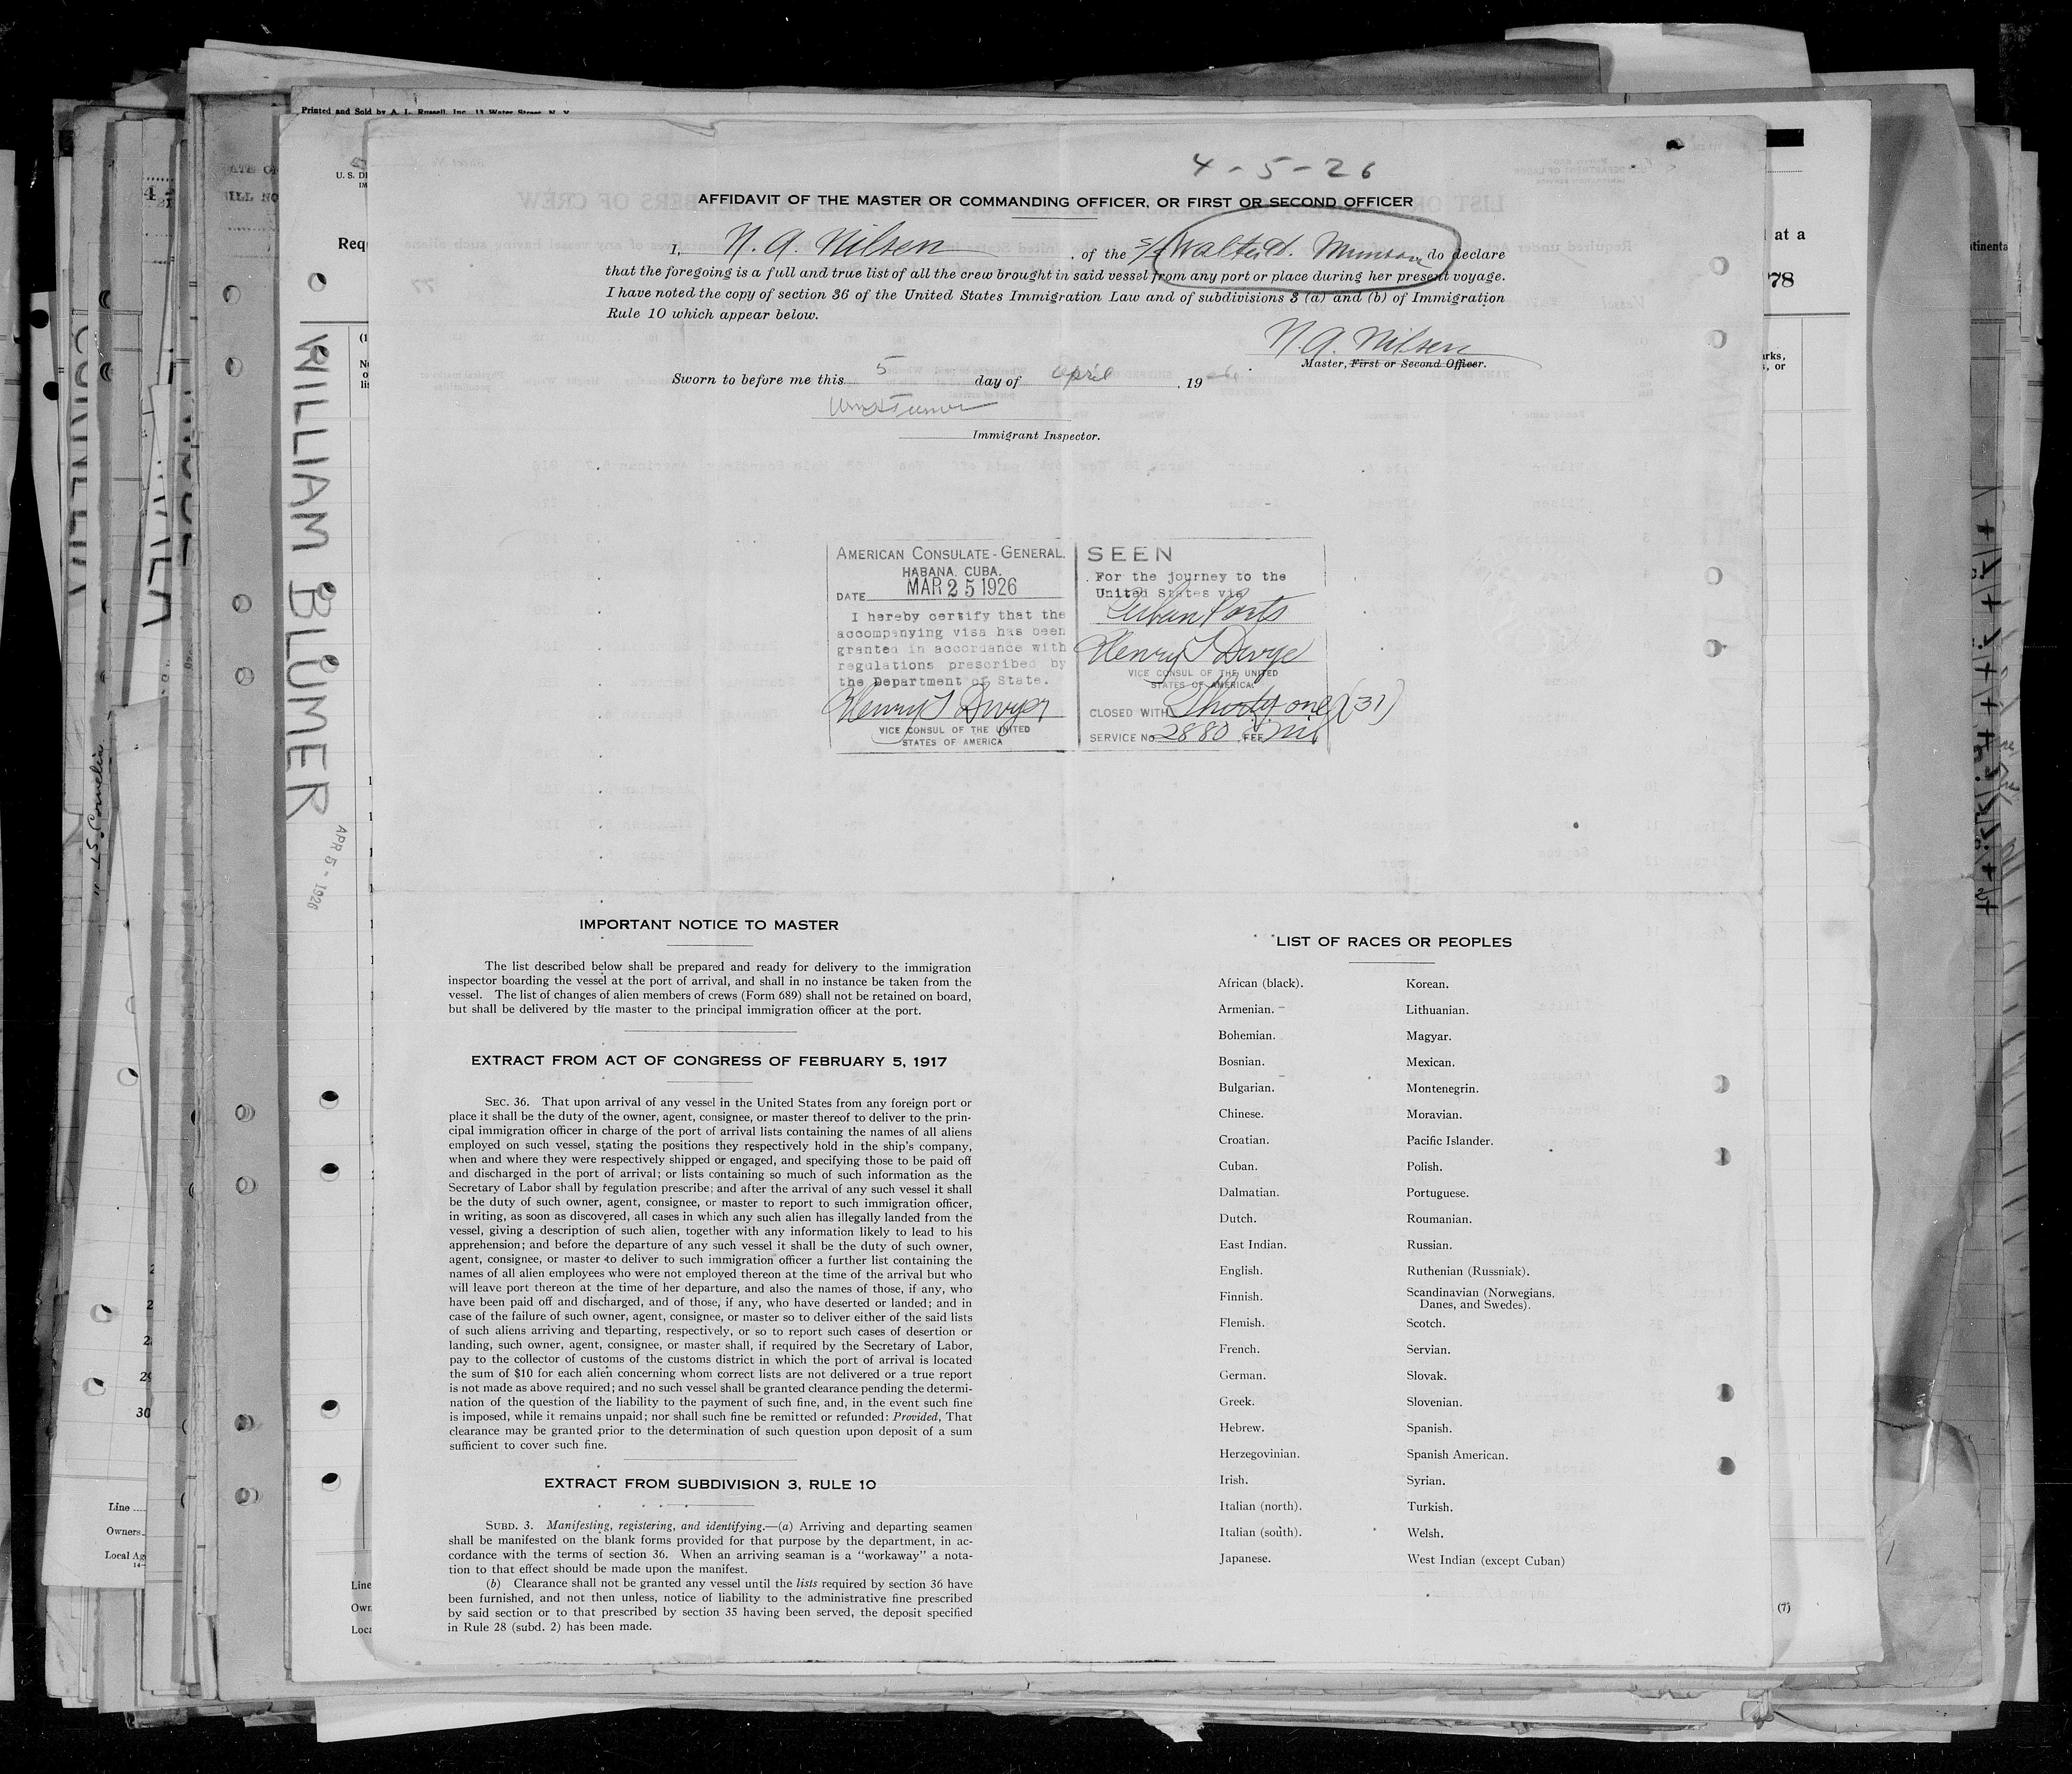 Printed and Sold by A. L. Russell, Inc. 13 Water Street, N. Y.
4-5-26
AFFIDAVIT OF THE MASTER OR COMMANDING OFFICER, OR FIRST OR SECOND OFFICER
I, N. A. Nilsen, of the S/S Walter D. Munson do declare
that the foregoing is a full and true list of all the crew brought in said vessel from any port or place during her present voyage.
I have noted the copy of section 36 of the United States Immigration Law and of subdivisions 3 (a) and (b) of Immigration
Rule 10 which appear below.
N. A. Nilsen
Master, First or Second Officer.
Sworn to before me this 5 day of April, 1926.
Immigrant Inspector.
AMERICAN CONSULATE-GENERAL.
HABANA, CUBA.
DATE MAR 25 1926
I hereby certify that the
accompanying visa has been
granted in accordance with
regulations prescribed by
the Department of State.
Henry T Dwyer
VICE CONSUL OF THE UNITED
STATES OF AMERICA
SEEN
For the journey to the
United States via
Cuban Ports
Henry T Dwyer
VICE CONSUL OF THE UNITED
STATES OF AMERICA
CLOSED WITH Thirty one (31)
SERVICE No 2880 FEE Nil
WILLIAM BLUMER
APR 5 - 1926
IMPORTANT NOTICE TO MASTER
The list described below shall be prepared and ready for delivery to the immigration
inspector boarding the vessel at the port of arrival, and shall in no instance be taken from the
vessel. The list of changes of alien members of crews (Form 689) shall not be retained on board,
but shall be delivered by the master to the principal immigration officer at the port.
EXTRACT FROM ACT OF CONGRESS OF FEBRUARY 5, 1917
SEC. 36. That upon arrival of any vessel in the United States from any foreign port or
place it shall be the duty of the owner, agent, consignee, or master thereof to deliver to the prin-
cipal immigration officer in charge of the port of arrival lists containing the names of all aliens
employed on such vessel, stating the positions they respectively hold in the ship's company,
when and where they were respectively shipped or engaged, and specifying those to be paid off
and discharged in the port of arrival; or lists containing so much of such information as the
Secretary of Labor shall by regulation prescribe; and after the arrival of any such vessel it shall
be the duty of such owner, agent, consignee, or master to report to such immigration officer,
in writing, as soon as discovered, all cases in which any such alien has illegally landed from the
vessel, giving a description of such alien, together with any information likely to lead to his
apprehension; and before the departure of any such vessel it shall be the duty of such owner,
agent, consignee, or master to deliver to such immigration officer a further list containing the
names of all alien employees who were not employed thereon at the time of the arrival but who
will leave port thereon at the time of her departure, and also the names of those, if any, who
have been paid off and discharged, and of those, if any, who have deserted or landed; and in
case of the failure of such owner, agent, consignee, or master so to deliver either of the said lists
of such aliens arriving and departing, respectively, or so to report such cases of desertion or
landing, such owner, agent, consignee, or master shall, if required by the Secretary of Labor,
pay to the collector of customs of the customs district in which the port of arrival is located
the sum of $10 for each alien concerning whom correct lists are not delivered or a true report
is not made as above required; and no such vessel shall be granted clearance pending the determi-
nation of the question of the liability to the payment of such fine, and, in the event such fine
is imposed, while it remains unpaid; nor shall such fine be remitted or refunded: Provided, That
clearance may be granted prior to the determination of such question upon deposit of a sum
sufficient to cover such fine.
EXTRACT FROM SUBDIVISION 3, RULE 10
SUBD. 3. Manifesting, registering, and identifying.—(a) Arriving and departing seamen
shall be manifested on the blank forms provided for that purpose by the department, in ac-
cordance with the terms of section 36. When an arriving seaman is a "workaway" a nota-
tion to that effect should be made upon the manifest.
(b) Clearance shall not be granted any vessel until the lists required by section 36 have
been furnished, and not then unless, notice of liability to the administrative fine prescribed
by said section or to that prescribed by section 35 having been served, the deposit specified
in Rule 28 (subd. 2) has been made.
LIST OF RACES OR PEOPLES
African (black).
Armenian.
Bohemian.
Bosnian.
Bulgarian.
Chinese.
Croatian.
Cuban.
Dalmatian.
Dutch.
East Indian.
English.
Finnish.
Flemish.
French.
German.
Greek.
Hebrew.
Herzegovinian.
Irish.
Italian (north).
Italian (south).
Japanese.
Korean.
Lithuanian.
Magyar.
Mexican.
Montenegrin.
Moravian.
Pacific Islander.
Polish.
Portuguese.
Roumanian.
Russian.
Ruthenian (Russniak).
Scandinavian (Norwegians,
Danes, and Swedes).
Scotch.
Servian.
Slovak.
Slovenian.
Spanish.
Spanish American.
Syrian.
Turkish.
Welsh.
West Indian (except Cuban)
at a
78
(7)
Line
Owners